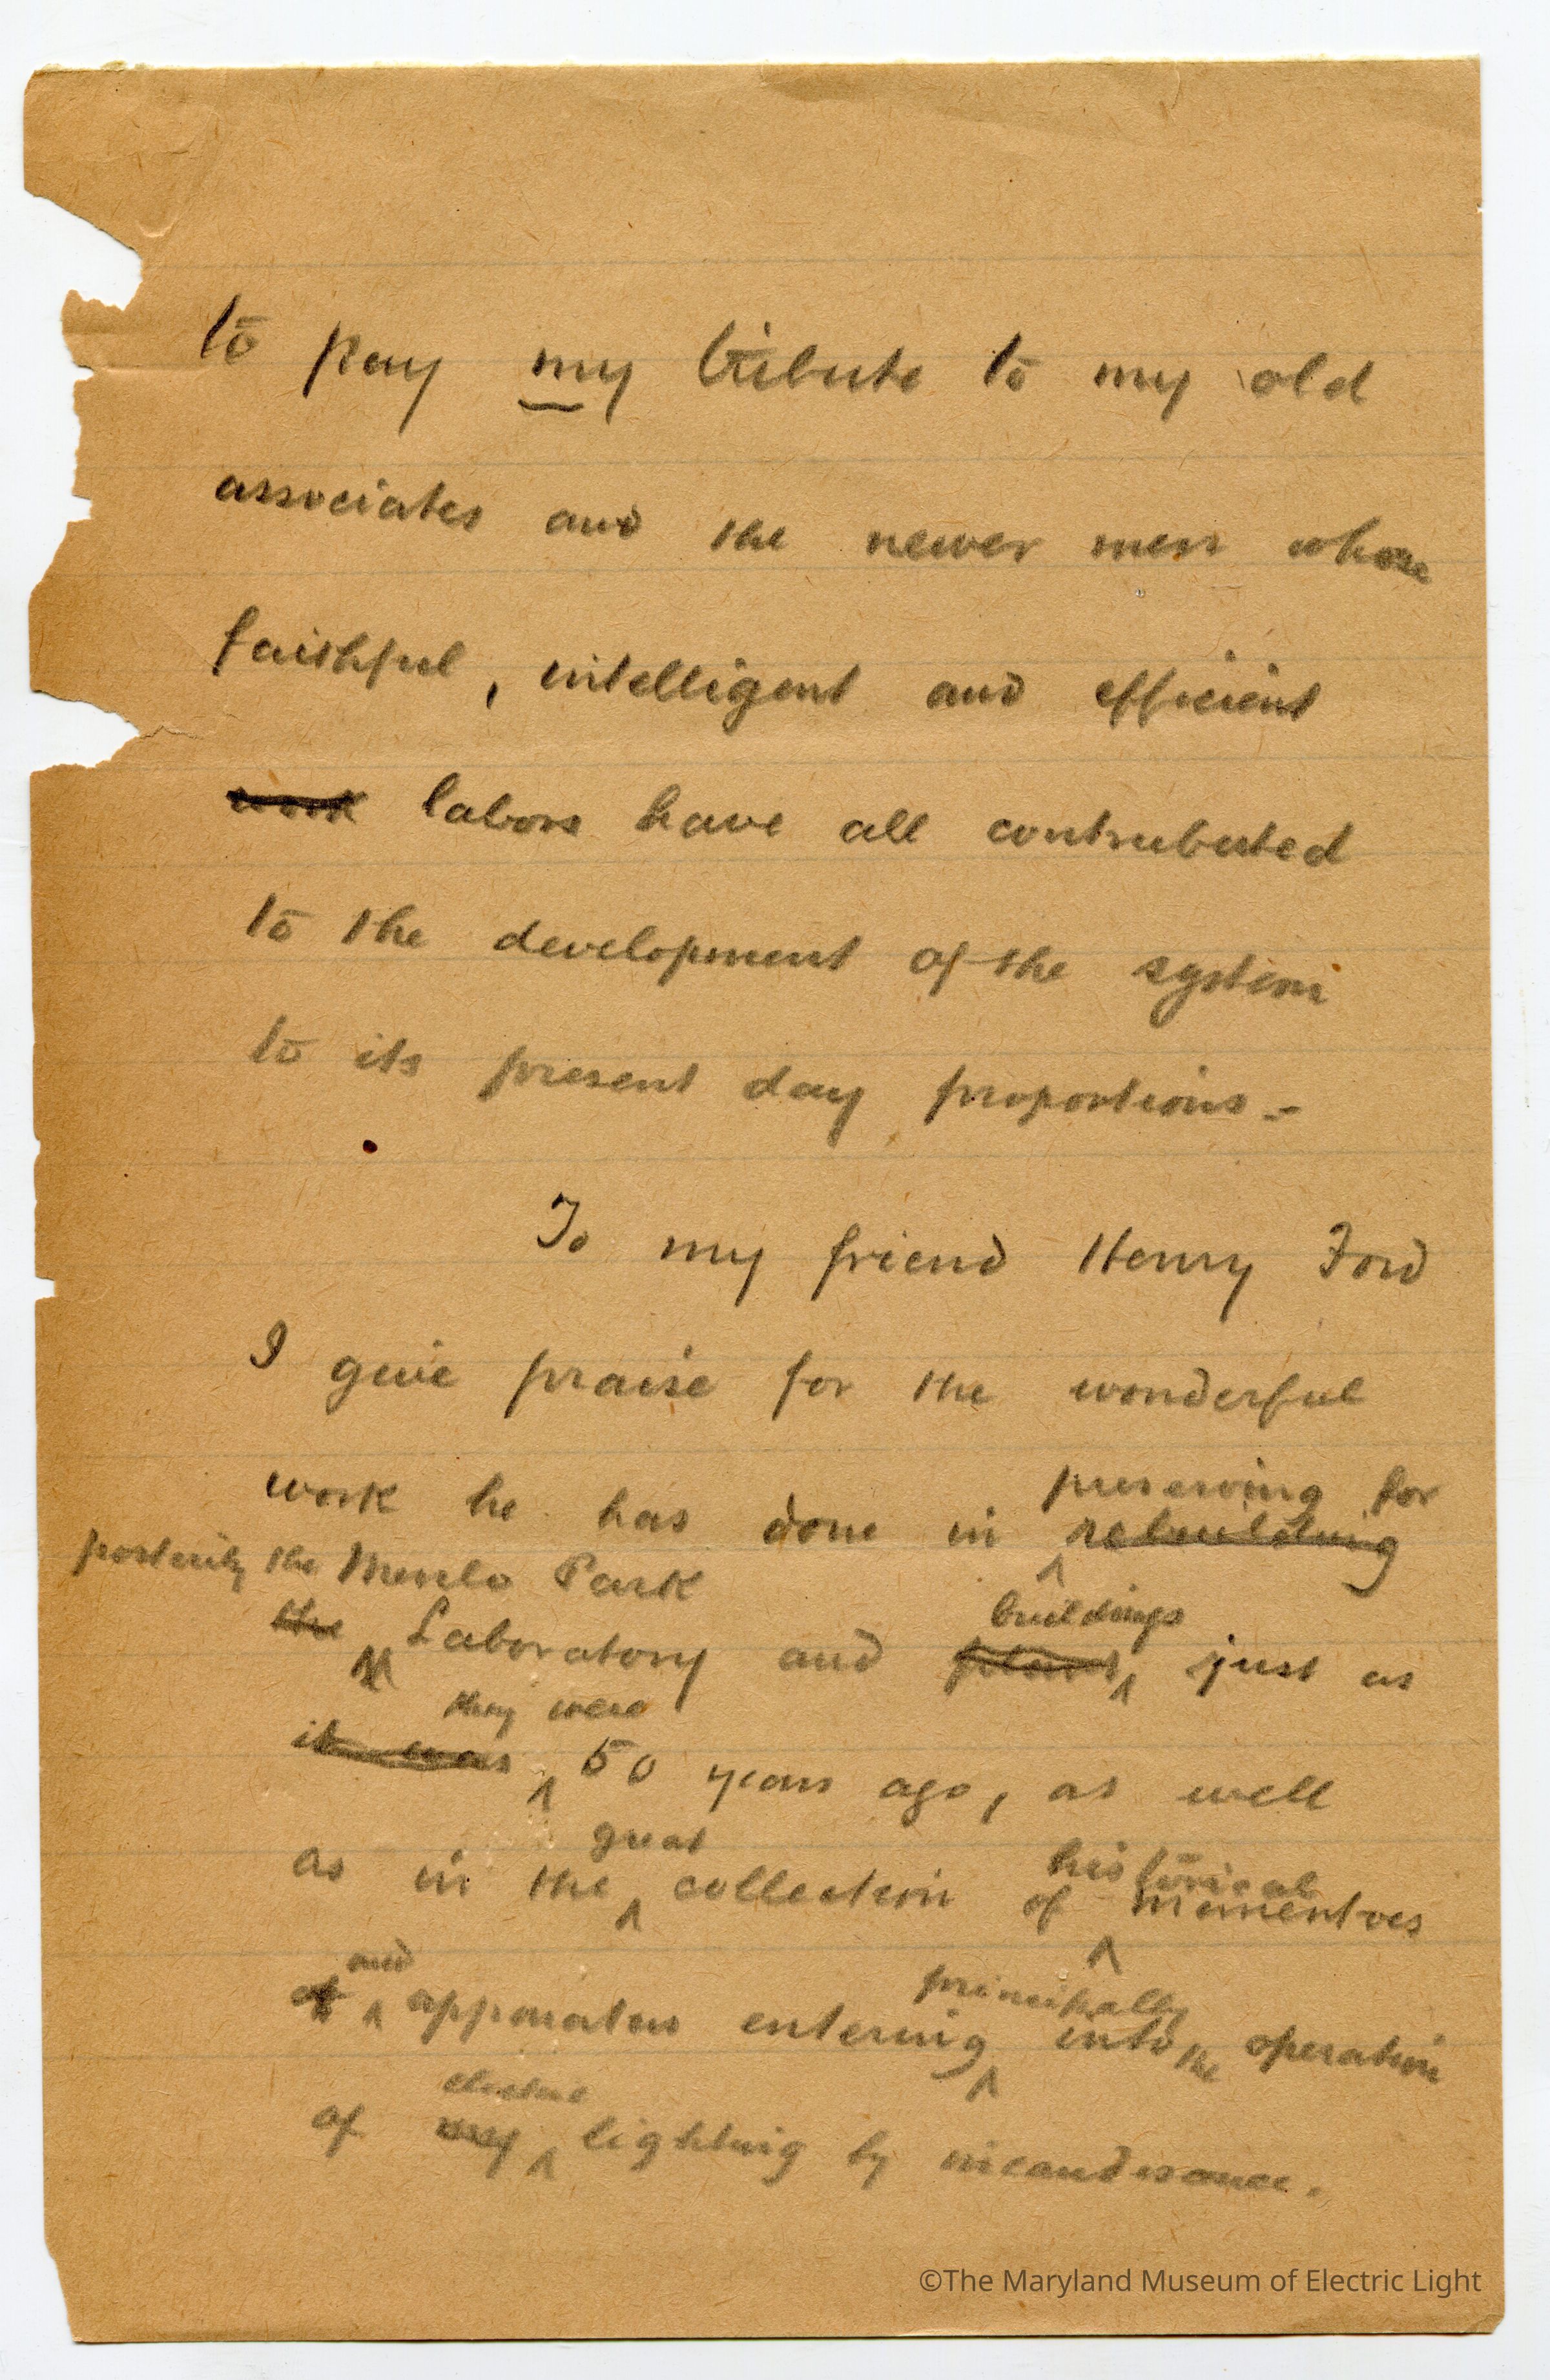 to pay my tribute to my old
associates and the newer men whose
faithful, intelligent and efficient
work labors have all contributed
to the development of the system
to its present day proportions.-
To my friend Henry Ford
I give praise for the wonderful
preserving for
work he has done in rebuilding
posterity the Menlo Park
buildings
the Laboratory and plant just as
they were
it was 50 years ago, as well
great historical
as in the collection of mementoes
and principally
of apparatus entering into the operation
electric
of my lighting by incandescence.
©The Maryland Museum of Electric Light